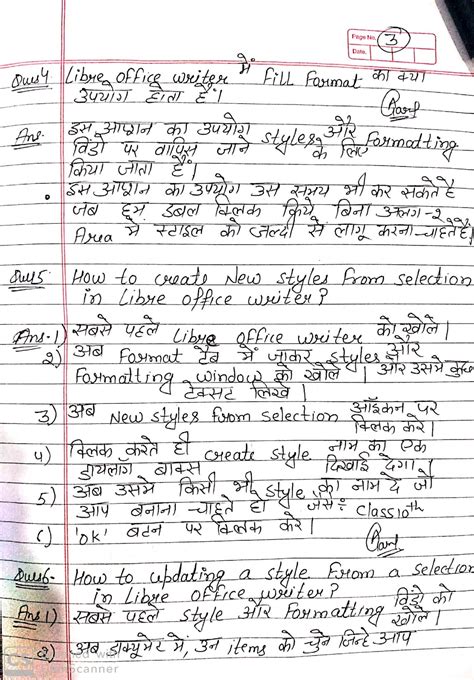 Page No. 3
Date.
Ques4 Libre office writer में Fill Format का क्या
उपयोग होता है।
Ans. इस आप्शन का उपयोग styles और Formatting
विंडो पर वापिस जाने के लिए
किया जाता है।
• इस आप्शन का उपयोग उस समय भी कर सकते है
जब हम डबल क्लिक किये बिना अलग-2
Area में स्टाइल को जल्दी से लागू करना चाहते है।
Ques5 How to create New styles From selection
in Libre office writer?
Ans.1) सबसे पहले Libre office writer को खोले।
2) अब Format टैब में जाकर styles और
Formatting window को खोले। और उसमे कुछ
टेक्सट लिखे।
3) अब New styles from selection आइकन पर
क्लिक करे।
4) क्लिक करते ही create style नाम का एक
डायलाग बाक्स दिखाई देगा।
5) अब उसमे किसी भी style का नाम दे जो
आप बनाना चाहते हो जैसे: Class10th
6) 'OK' बटन पर क्लिक करे।
Ques6. How to updating a style From a selection
in Libre office writer?
Ans 1) सबसे पहले style और Formatting विंडो को
खोले।
2) अब डाक्यूमेंट में, उन items को चुने जिन्हे आप
Scanner